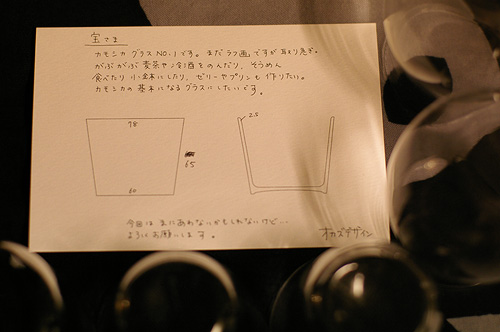 宝さま
カモシカ グラス NO.1 です。まだラフ画ですが取り急ぎ。
がぶがぶ 麦茶や冷酒をのんだり、そうめん
食べたり 小鉢にしたり、ゼリーやプリンも作りたい。
カモシカの 基本になるグラスにしたいです。
98
2.5
65
60
今回は まにあわないかもしれないけど…
よろしくお願いします。
オカズデザイン